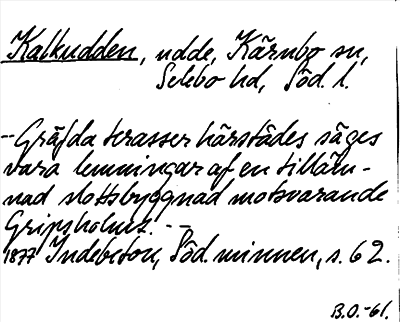 Kalkudden, udde, Kärnbo sn,
Selebo hd, Söd. l.
--Gräfda terasser härstädes säges
vara lemningar af en tilläm-
nad slottsbyggnad motsvarande
Gripsholms. --
1877 Indebetou, Söd. minnen, s. 62.
B.O.-61.